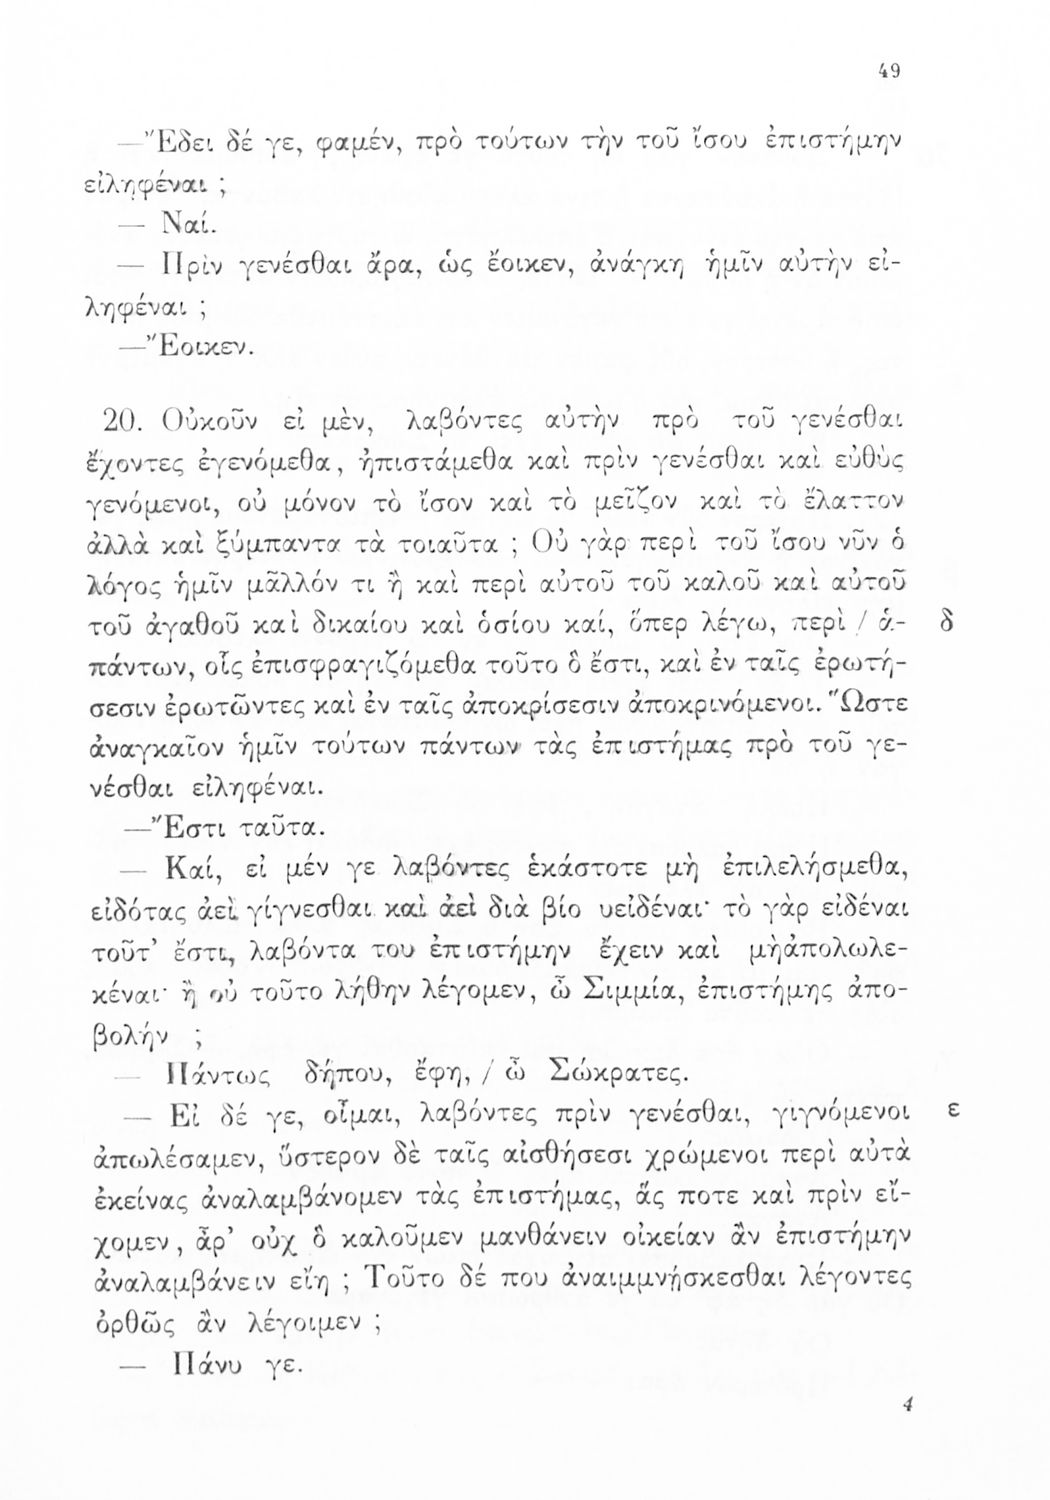 49
— Ἔδει δέ γε, φαμέν, πρὸ τούτων τὴν τοῦ ἴσου ἐπιστήμην
εἰληφέναι ;
— Ναί.
— Πρὶν γενέσθαι ἄρα, ὡς ἔοικεν, ἀνάγκη ἡμῖν αὐτὴν εἰ-
ληφέναι ;
— Ἔοικεν.
20. Οὐκοῦν εἰ μὲν, λαβόντες αὐτὴν πρὸ τοῦ γενέσθαι
ἔχοντες ἐγενόμεθα, ἠπιστάμεθα καὶ πρὶν γενέσθαι καὶ εὐθὺς
γενόμενοι, οὐ μόνον τὸ ἴσον καὶ τὸ μεῖζον καὶ τὸ ἔλαττον
ἀλλὰ καὶ ξύμπαντα τὰ τοιαῦτα ; Οὐ γὰρ περὶ τοῦ ἴσου νῦν ὁ
λόγος ἡμῖν μᾶλλόν τι ἢ καὶ περὶ αὐτοῦ τοῦ καλοῦ καὶ αὐτοῦ
τοῦ ἀγαθοῦ καὶ δικαίου καὶ ὁσίου καί, ὅπερ λέγω, περὶ / ἁ- δ
πάντων, οἷς ἐπισφραγιζόμεθα τοῦτο ὃ ἔστι, καὶ ἐν ταῖς ἐρωτή-
σεσιν ἐρωτῶντες καὶ ἐν ταῖς ἀποκρίσεσιν ἀποκρινόμενοι. Ὥστε
ἀναγκαῖον ἡμῖν τούτων πάντων τὰς ἐπιστήμας πρὸ τοῦ γε-
νέσθαι εἰληφέναι.
— Ἔστι ταῦτα.
— Καί, εἰ μέν γε λαβόντες ἑκάστοτε μὴ ἐπιλελήσμεθα,
εἰδότας ἀεὶ γίγνεσθαι καὶ ἀεὶ διὰ βίο υεἰδέναι· τὸ γὰρ εἰδέναι
τοῦτ’ ἔστι, λαβόντα του ἐπιστήμην ἔχειν καὶ μὴἀπολωλε-
κέναι· ἢ οὐ τοῦτο λήθην λέγομεν, ὦ Σιμμία, ἐπιστήμης ἀπο-
βολήν ;
— Πάντως δήπου, ἔφη, / ὦ Σώκρατες.
— Εἰ δέ γε, οἶμαι, λαβόντες πρὶν γενέσθαι, γιγνόμενοι ε
ἀπωλέσαμεν, ὕστερον δὲ ταῖς αἰσθήσεσι χρώμενοι περὶ αὐτὰ
ἐκείνας ἀναλαμβάνομεν τὰς ἐπιστήμας, ἅς ποτε καὶ πρὶν εἴ-
χομεν, ἆρ’ οὐχ ὃ καλοῦμεν μανθάνειν οἰκείαν ἂν ἐπιστήμην
ἀναλαμβάνειν εἴη ; Τοῦτο δέ που ἀναιμμνήσκεσθαι λέγοντες
ὀρθῶς ἂν λέγοιμεν ;
— Πάνυ γε.
4